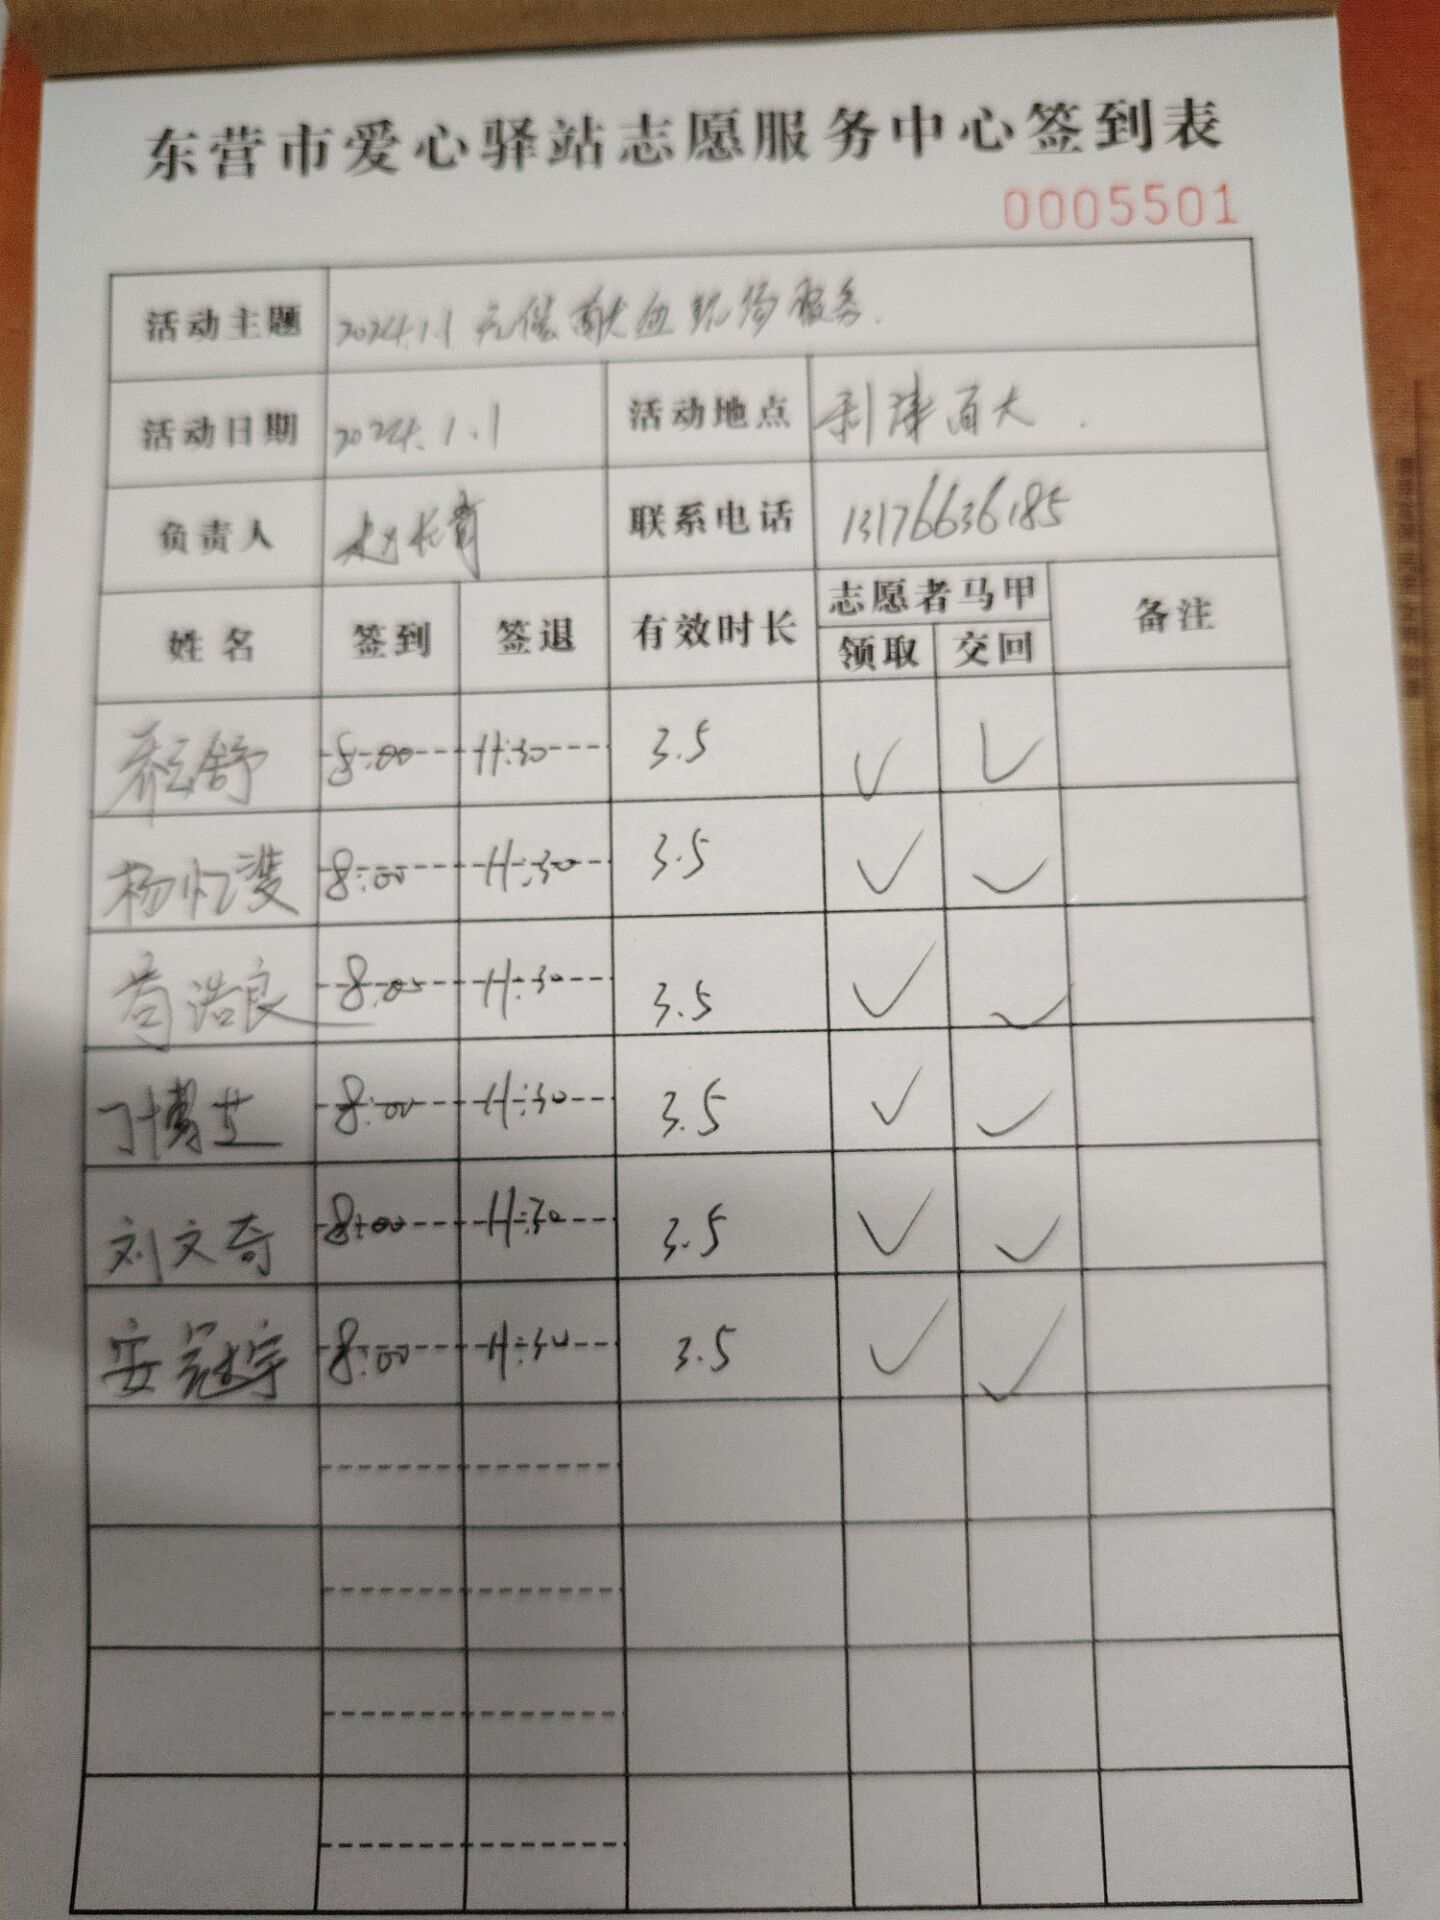 东营市爱心驿站志愿服务中心签到表
0005501
活动主题 2024.1.1 无偿献血现场服务.
活动日期 2024.1.1 活动地点 利津百大.
负责人 赵长青 联系电话 13176636185
姓名 签到 签退 有效时长 志愿者马甲 备注
领取 交回
舒 8:00 11:30 3.5 ✓ ✓
杨忆 8:00 11:30 3.5 ✓ ✓
苟浩良 8:05 11:30 3.5 ✓ ✓
丁博艺 8:00 11:30 3.5 ✓ ✓
刘文奇 8:00 11:30 3.5 ✓ ✓
安冠宇 8:00 11:30 3.5 ✓ ✓